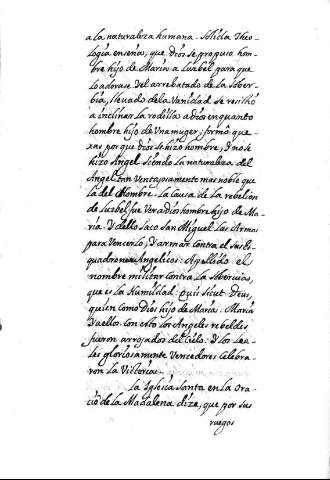 a la naturaleza humana. Solida Theo-
logia enseña, que Dios se propuso hom-
bre hijo de Maria a Luzbel para que
lo adorase. El arrebatado de la sober-
bia, llevado de la vanidad se resistió
a inclinar la rodilla a Dios en quanto
hombre hijo de una muger; formó que-
xas por que Dios se hizo hombre, y no se
hizo Angel siendo la naturaleza del
Angel tan ventajosamente mas noble que
la del Hombre. La causa de la rebelion
de Luzbel fue ver a Dios hombre hijo de Ma-
ria. Y dello saco San Miguel las Armas
para vencerlo, y armar contra el sus Es-
quadrones Angelicos: Apellido el
nombre militar contra la sobervia,
que es la Humildad: Quis sicut Deus,
quien como Dios hijo de Maria: Maria
y a ellos. Con esto los Angeles rebeldes
fueron arrojados del Cielo: y los lea-
les gloriosamente vencedores celebra-
ron la Victoria.
La Iglesia Santa en la Ora-
ció de la Madalena dize, que por sus
ruegos